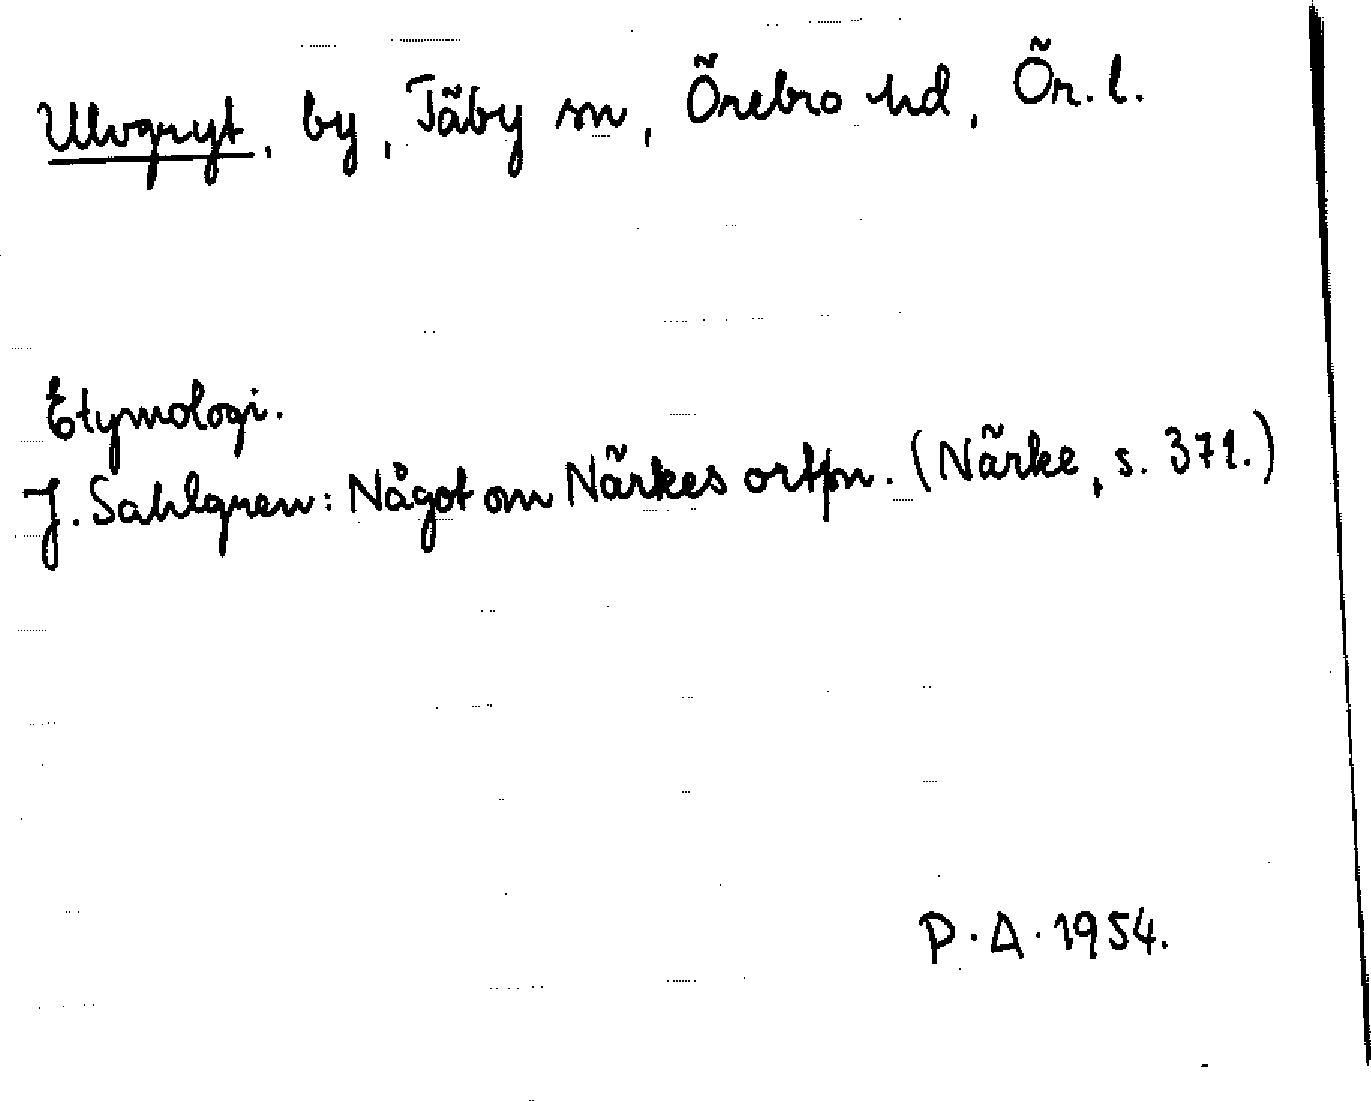 Ulvgryt, by, Täby sn, Örebro hd, Ör. l.
Etymologi.
J. Sahlgren: Något om Närkes ortpn. (Närke, s. 371.)
P. A. 1954.